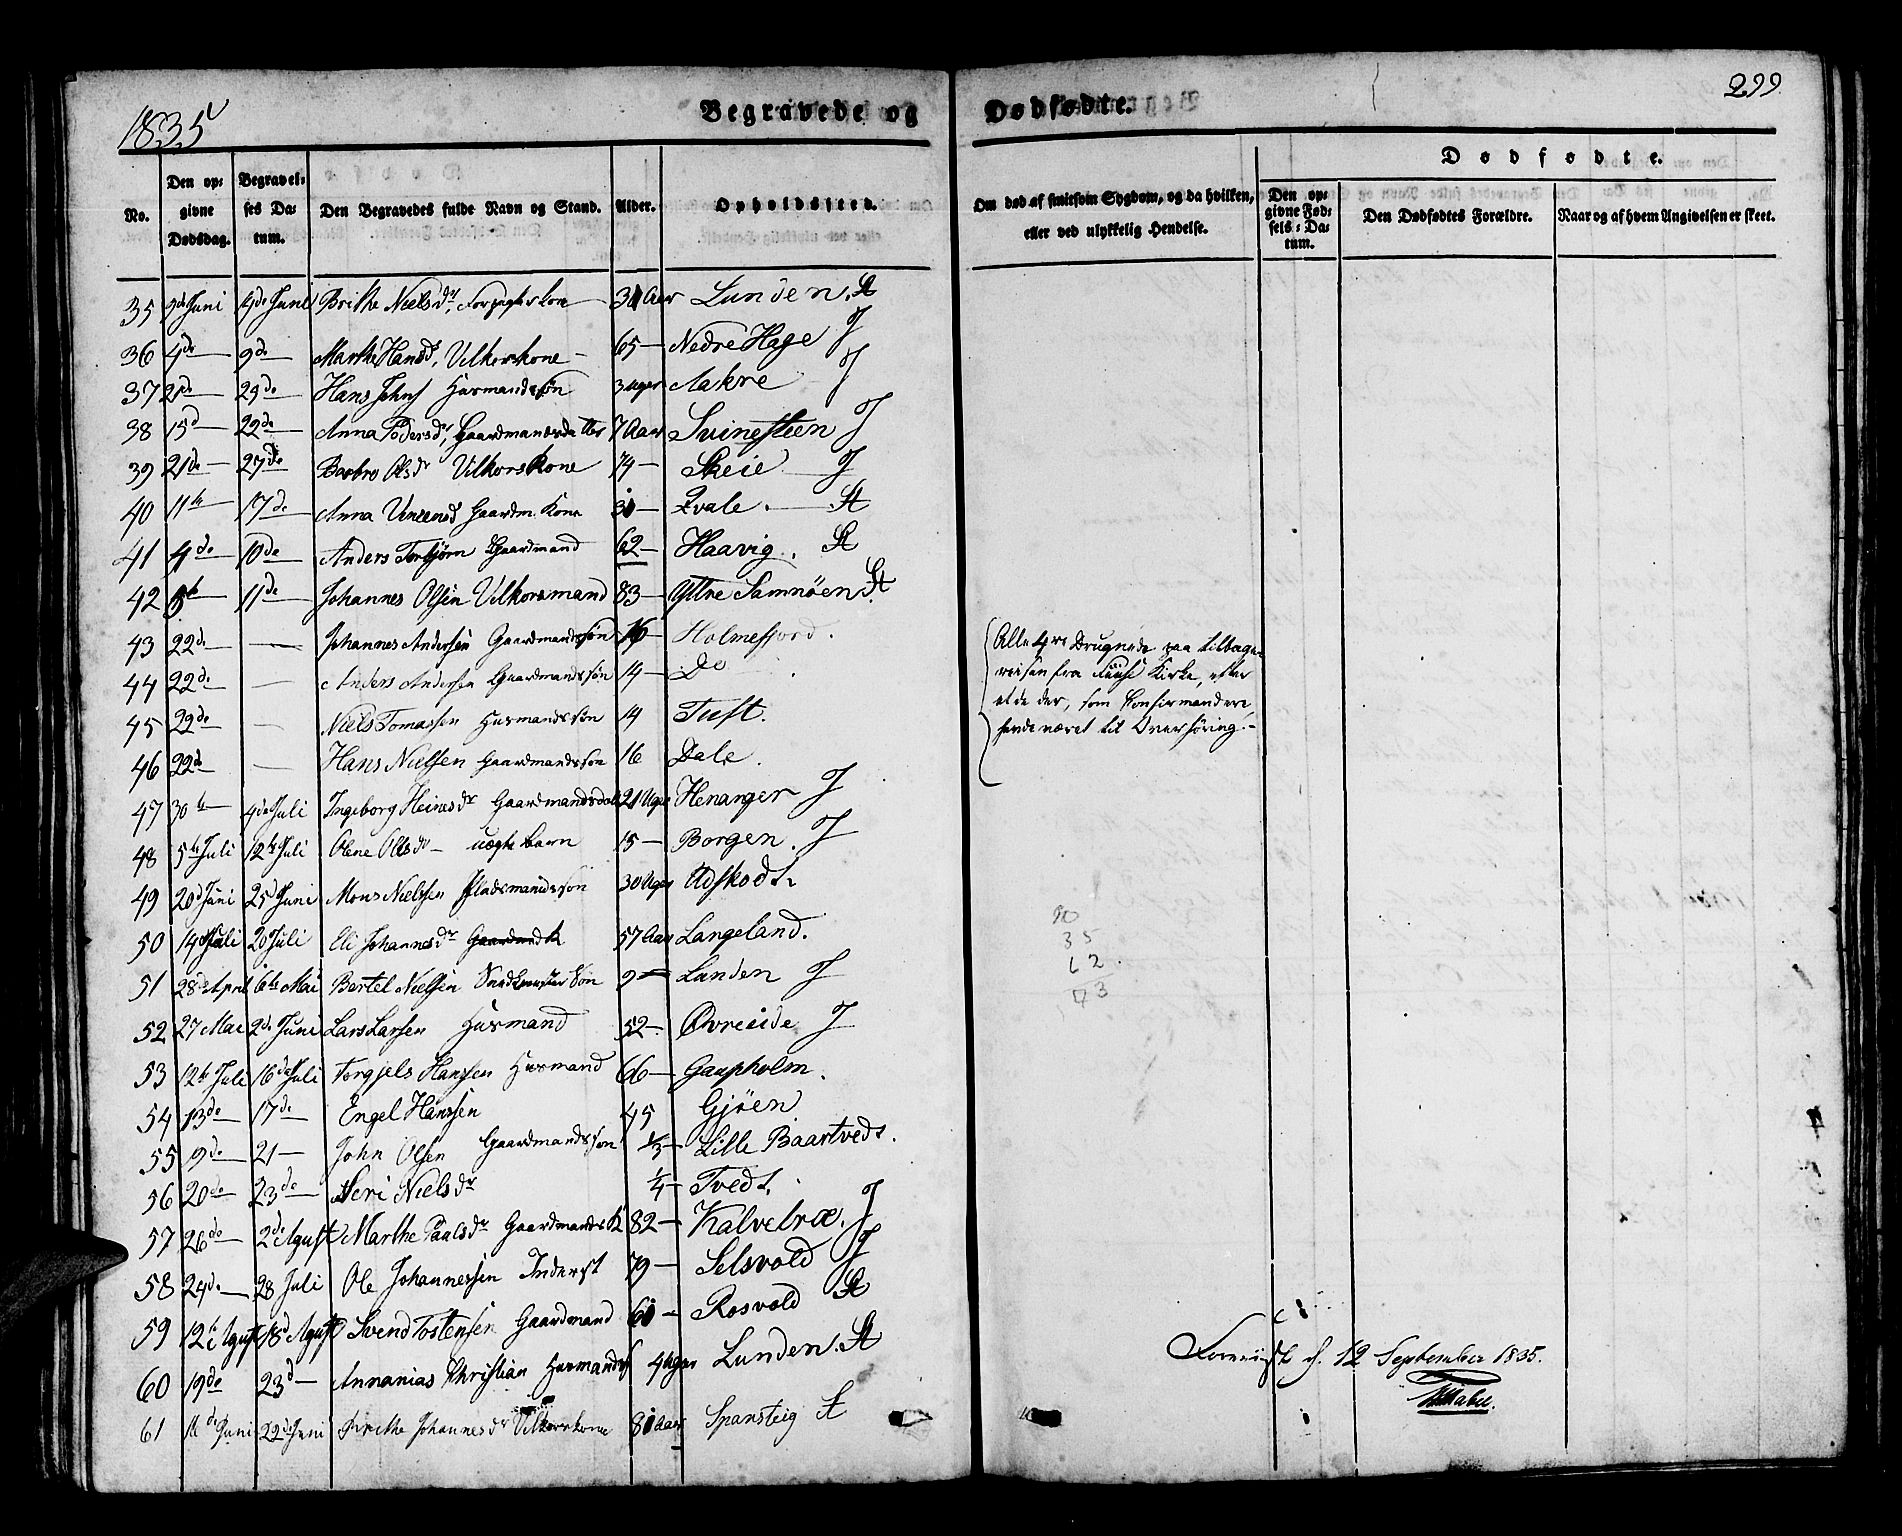 1835
Begravede og Dødfødte.
299.
No.
Den opgivne Dødsdag.
Begravelses Datum.
Den Begravedes fulde Navn og Stand.
Alder.
Opholdssted.
Om død af smitsom Sygdom, og da hvilken, eller ved ulykkelig Hendelse.
Dødfødte.
Den opgivne Fødsels-Datum.
Den Dødfødtes Forældre.
Naar og af hvem Angivelsen er skeet.
35 Juni 4de Juni Brithe Nielsdr, Kone 31 Aar Lunden. St
36 4de 9de Marthe Hansd, Vilkorskone 65 Nedre Hage J
37 29de Hans Johns Husmandssøn 3 Uger Aakre J
38 15d 22de Anna Pedersdr, Gaardmandsdatter 7 Aar Svinesteen J
39 21de 27de Barbro Olsdr Vilkorskone 74 Skeie J
40 11te 17de Anna Gaardm. Kone 30 Qvale. St
41 4de 10de Anders Torbjørn Gaardmand 62 Haavig. St
42 5te 11de Johannes Olsen Vilkorsmand 83 Yttre Samnøen St
43 22de — Johannes Andersen Gaardmandssøn 16 Holmefjord.
44 22de — Anders Andersen Gaardmandssøn 14 Do
45 22de — Niels Tomassen Husmandssøn 14 Tuft.
46 22de — Hans Nielsen Gaardmandssøn 16 Dale.
Alle 4re Drugnede paa Tilbagereisen fra Fuuse Kirke, efter at de der, som Confirmandere, havde været til Overhøring.
47 30te 4de Juli Ingeborg Heinesdr Gaardmandsdatt 21 Uger Henanger J
48 5te Juli 12te Juli Olene Olsdr uægte Barn 15 Borgen. J
49 20d Juni 25d Juni Mons Nielssen Pladsmandssøn 30 Uger Udskodt.
50 14d Juli 20 Juli Eli Johannesdr Gaardmdk 57 Aar Langeland.
51 28de April 6te Mai Bertel Nielsen Søn 9 Lunden J
52 27 Mai 2de Juni Lars Larsen Husmand 52 Øvreeide J
53 12te Juli 16de Juli Torgjels Hanssen Husmand 66 Gaupholm.
54 13de 17de Engel Hanssen 45 Gjøen
55 19de 21 John Olsen Gaardmandssøn 1/3 Lille Baartvedt.
56 20de 23de Seri Nielsdr 1/4 Tvedt.
57 26de 2de Agust Marthe Paalsdr Gaardmandsk 82 Kalvetræ. J
58 24de 28 Juli Ole Johannessen Inderst 79 Selsvold J
59 12te Agust 18d Agust Svend Tostensen Gaardmand 60 Rosvold St
60 19de 23d Annanias Christian Husmands 4 Uger Lunden. St
61 Juni 22de Juni Brithe Johannesdr Vilkorskone 80 Aar Spansteig St
90
35
62
12 September 1835.